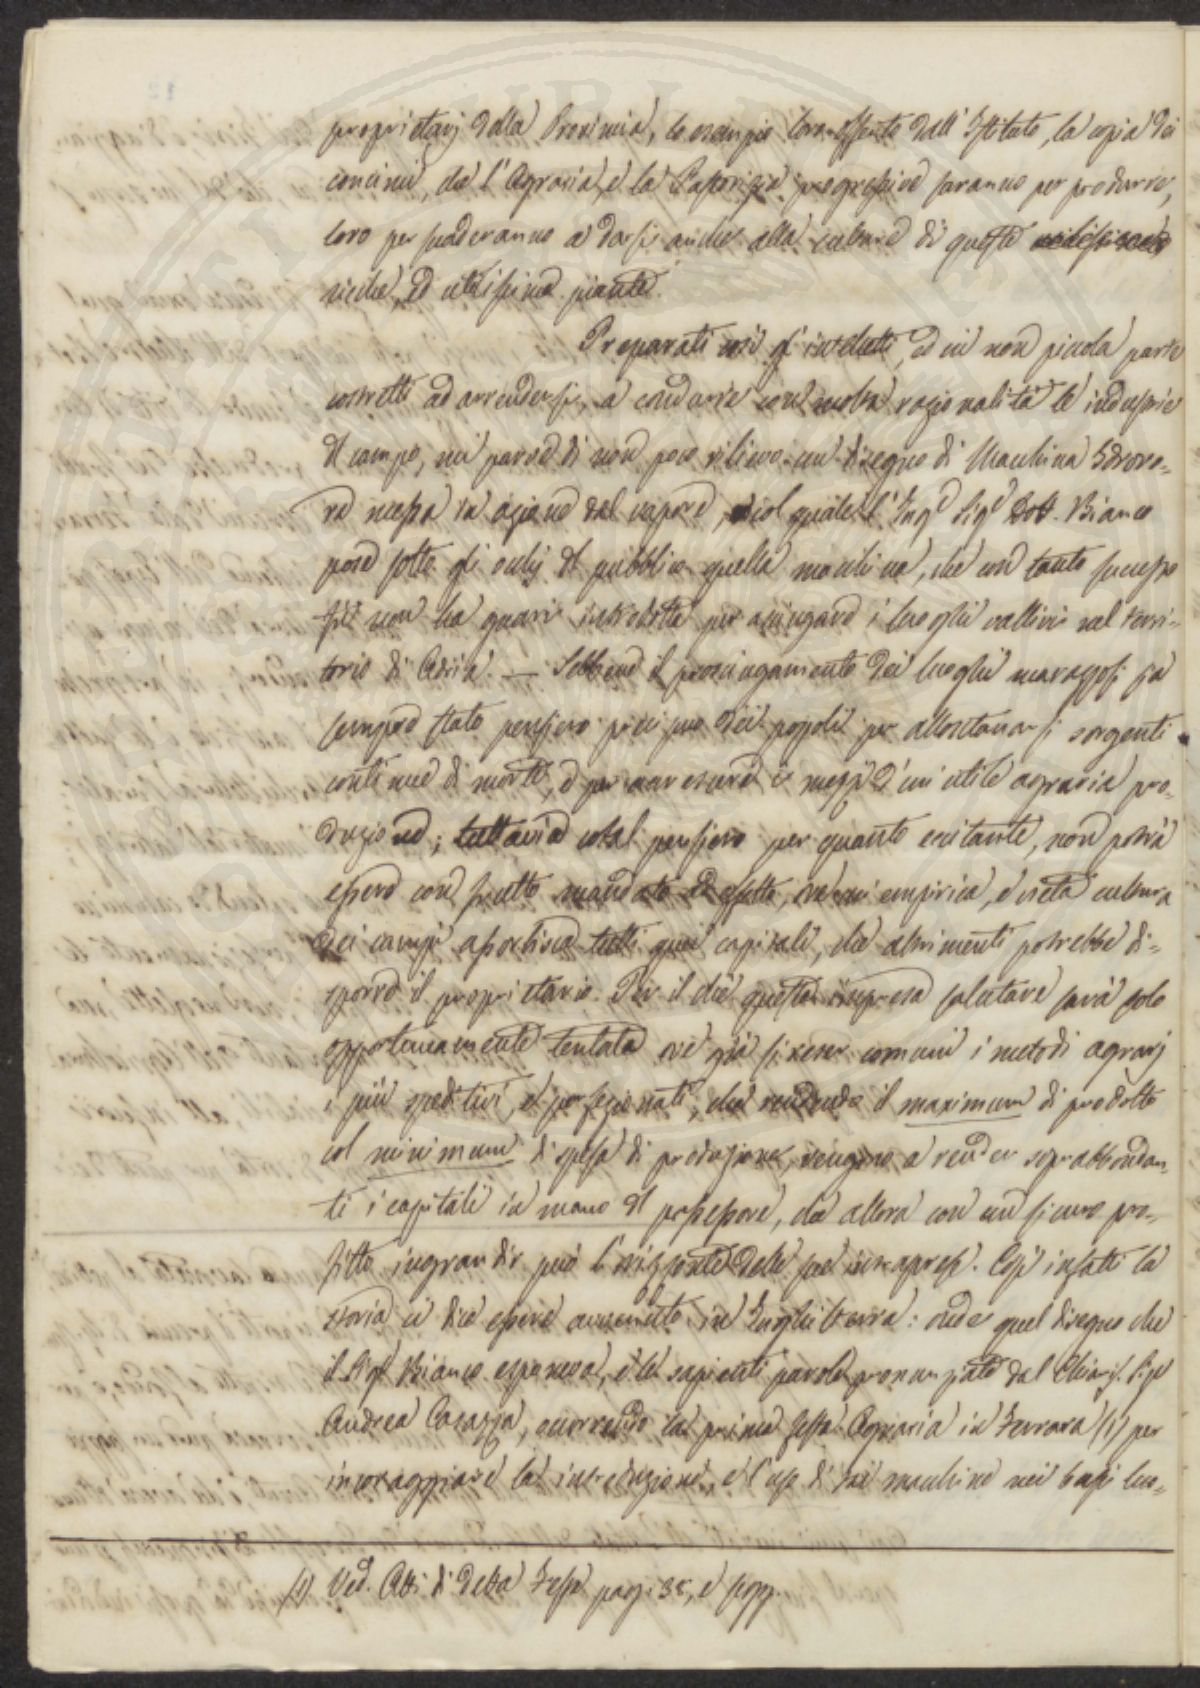 proprietarj della Provincia, lo esempio loro offerto dall'Istituto, la copia dei
concimi, che l'Agraria, e la Pastorizia progressive saranno per produrre,
loro persuaderanno a darsi anche alla cultura di queste
ricche, ed utilissime piante.
Preparati così gl'intelletti, ed in non picciola parte
costretti ad arrendersi, a condurre con molta razionalità le industrie
del campo, mi parve di non poco rilievo un disegno di Macchina Idrovo-
ra messa in azione dal vapore, col quale l'Inge Sige Dott. Bianco
pose sotto gli occhj del pubblico quella macchina, che con tanto successo
fu non ha guari introdotta per asciugare i luoghi vallivi nel terri-
torio di Adria. — Sebbene il prosciugamento dei luoghi marazzosi sia
sempre stato pensiero precipuo dei popoli per allontanarsi sorgenti
continue di morte, e per accrescere i mezzi d'un'utile agraria pro-
duzione; tuttavia cotal pensiero per quanto eccitante, non potrà
essere con frutto mandato ad effetto, ove un'empirica, e vieta cultura
dei campi assorbisca tutti quei capitali, che altrimenti potrebbe di-
sporre il proprietario. Per il che questa impresa salutare sarà solo
opportunamente tentata ove già si resero comuni i metodi agrarj
i più speditivi, e perfezionati, che rendendo il maximum di prodotto
col minimum di spesa di produzione, vengono a render soprabbondan-
ti i capitali in mano del possessore, che allora con un sicuro pro-
fitto ingrandir può l'orizzonte delle sue imprese. Così infatti la
storia ci dice essere avvenuto in Inghilterra: onde quel disegno che
il Sige Bianco esponeva, e le sapienti parole pronunziate dal Chiaris. Sige
Andrea Casazza, occorrendo la prima festa Agraria in Ferrara (1) per
incoraggiare la introduzione, e l'uso di tai macchine nei bassi luo-
(1) Ved. Atti di detta Festa pag. 35, e segg.